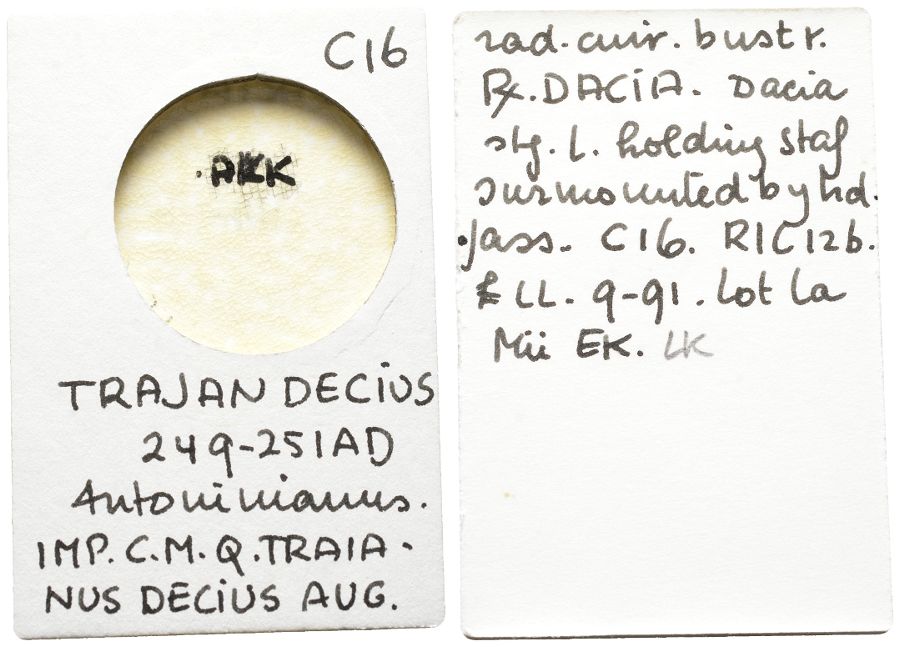 C16
TRAJAN DECIUS
249-251AD
Antoninianus.
IMP. C.M. Q. TRAIA-
NUS DECIUS AUG.
rad. cuir. bust r.
R. DACIA. Dacia
stg. l. holding staf
surmounted by hd.
jass. C16. RIC12b.
LL. 9-91. lot la
EK. LK